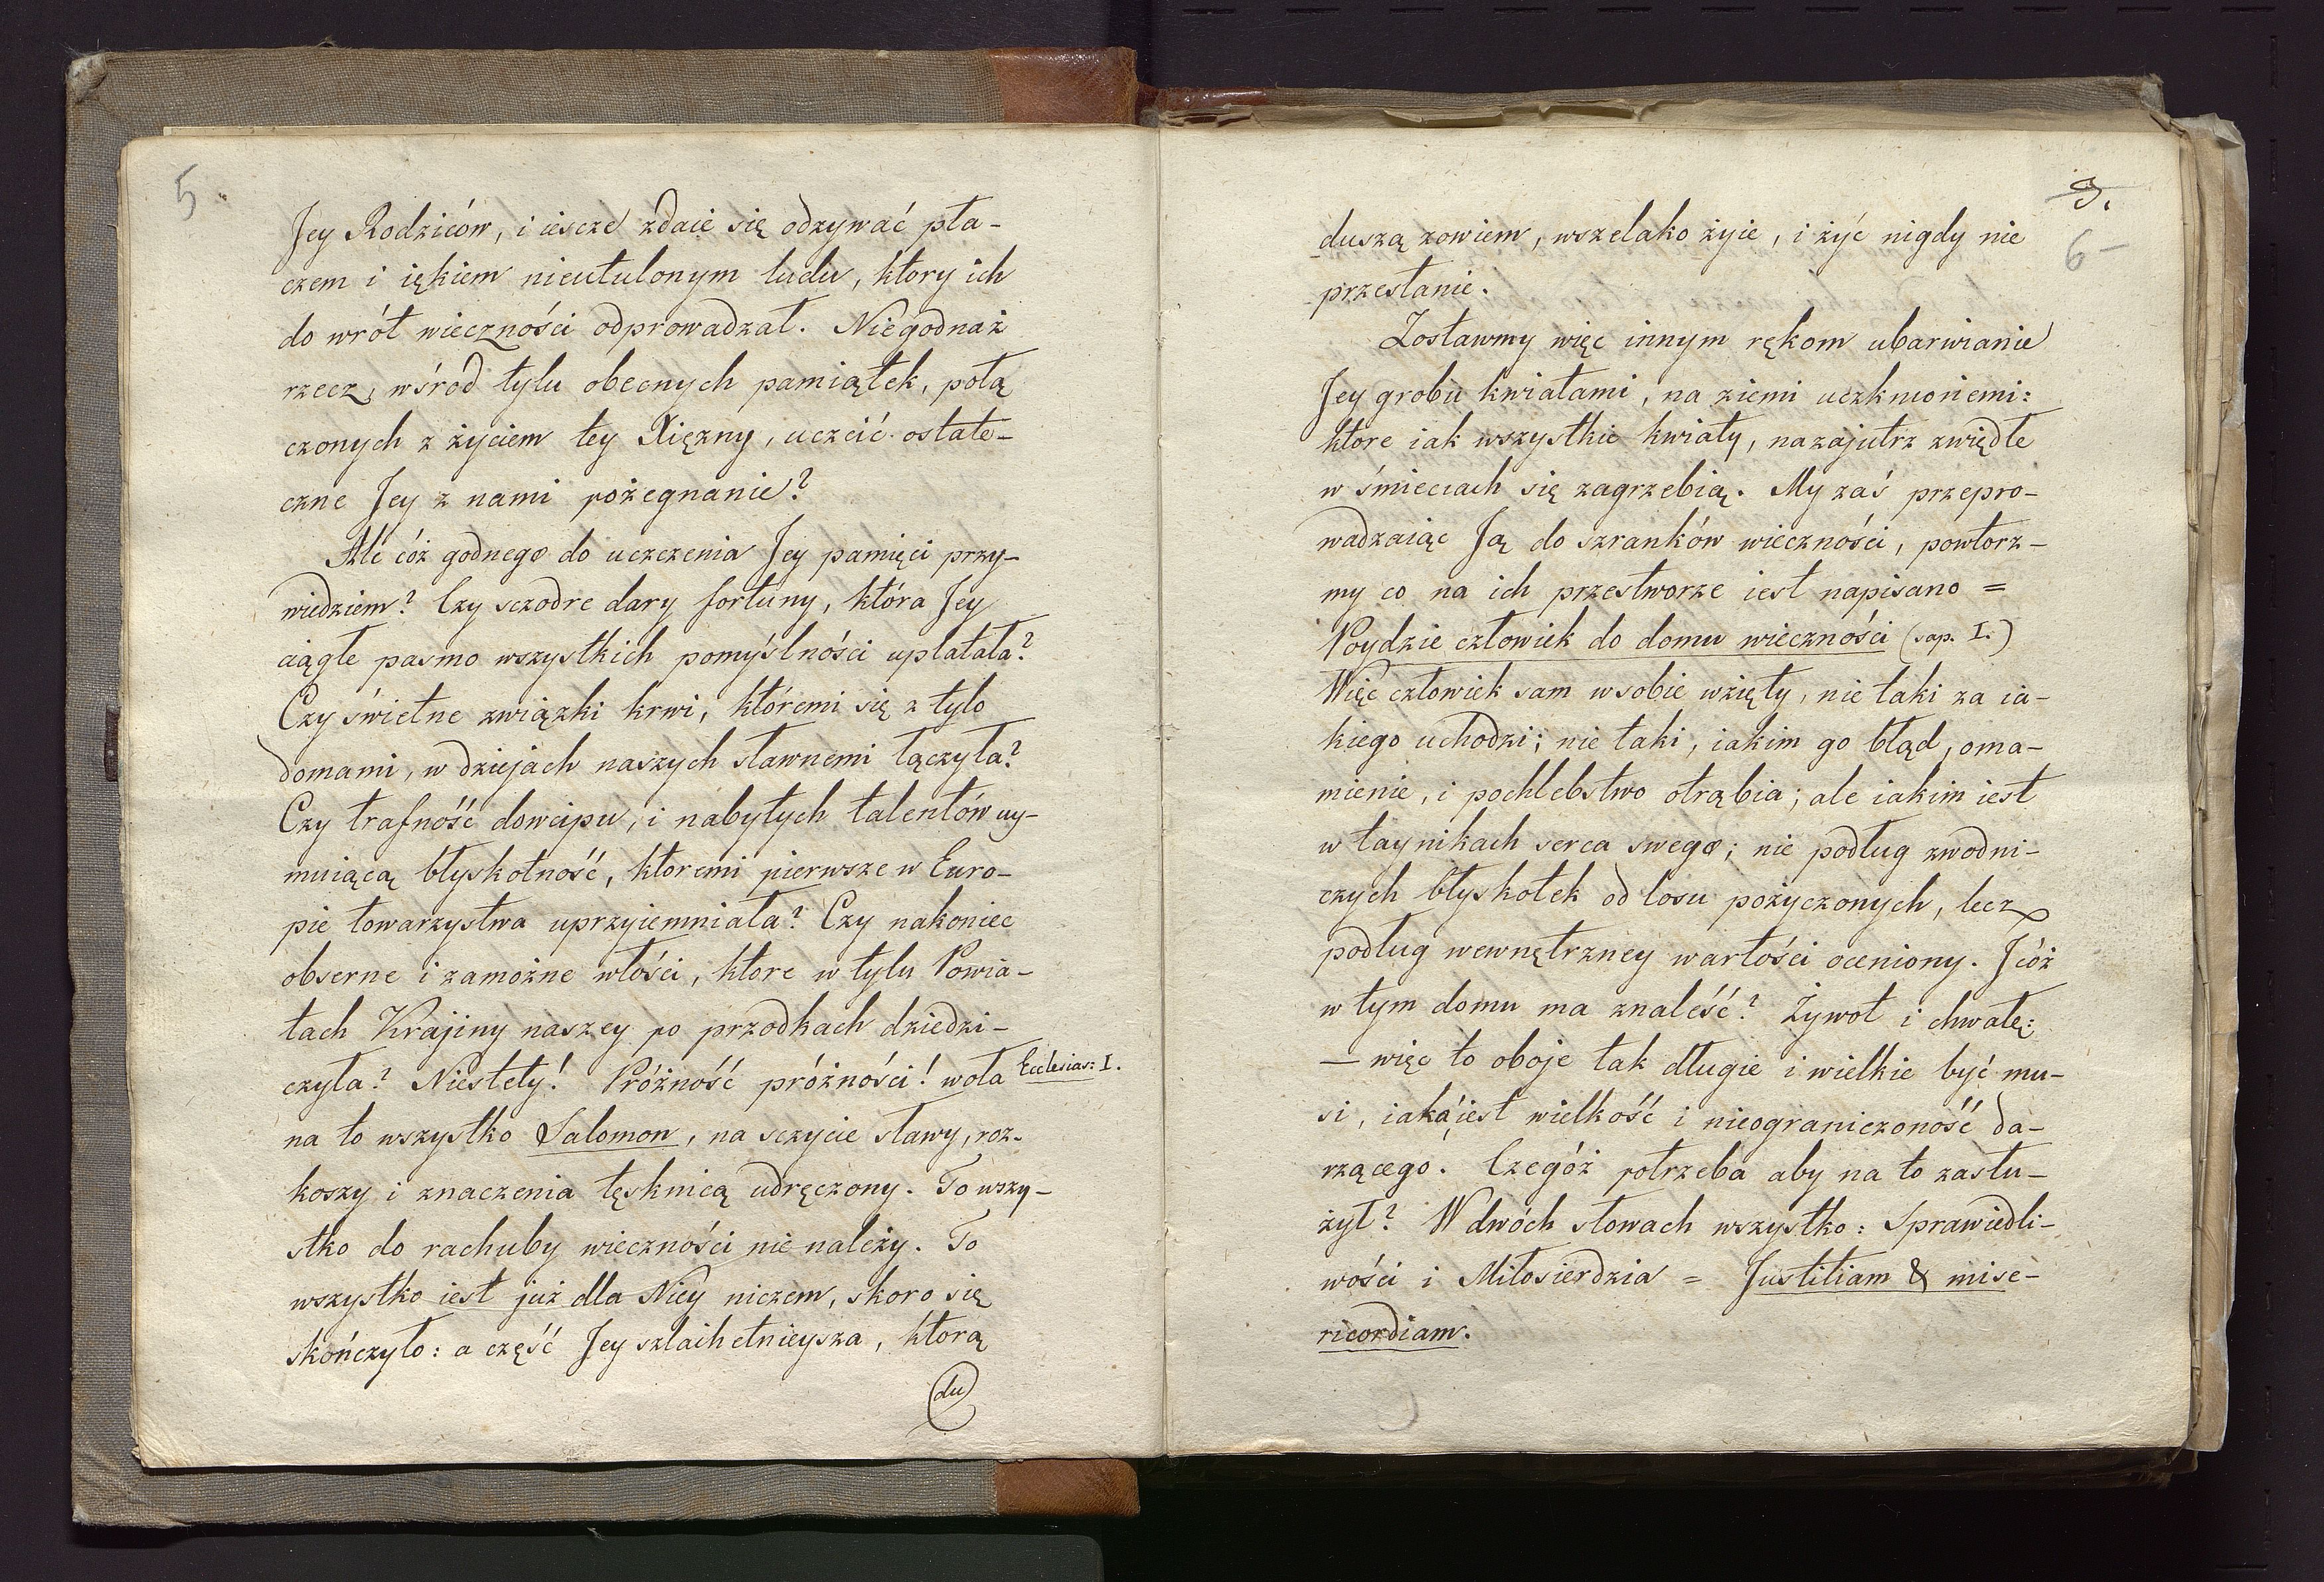 5
Jey Rodziców, i iescze zdaie się odzywać pła-
czem i iękiem nieutulonym ludu, ktory ich
do wrót wieczności odprowadzał. Niegodnaż
rzecz, wśrod tylu obecnych pamiątek, połą
czonych z życiem tey Xiężny, uczcić ostate-
czne Jey z nami pożegnanie?
Ale cóż godnego do uczczenia Jey pamięci przy-
wiedziem? Czy sczodre dary fortuny, która Jey
ciągłe pasmo wszystkich pomyślności uplatała?
Czy świetne związki krwi, któremi się z tylo
domami, w dziejach naszych sławnemi łączyła?
Czy trafność dowcipu, i nabytych talentów uy-
muiącą błyskotność, ktoremi pierwsze w Euro-
pie towarzystwa uprzyiemniała? Czy nakoniec
obserne i zamożne włości, ktore w tylu Powia-
tach Krajiny naszey po przodkach dziedzi-
czyła? Niestety! Próżność próżności! woła Ecclesias: I.
na to wszystko Salomon, na sczycie sławy, roz-
koszy i znaczenia tęsknicą udręczony. To wszy-
stko do rachuby wieczności nie należy. To
wszystko iest już dla Niey niczem, skoro się
skończyło: a część Jey szlachetnieysza, którą
(du)
3.
6
duszą zowiem, wszelako żyie, i żyć nigdy nie
przestanie.
Zostawmy więc innym rękom ubarwianie
Jey grobu kwiatami, na ziemi uszknioniemi:
ktore iak wszystkie kwiaty, nazajutrz zwiędłe
w śmieciach się zagrzebią. My zaś przepro-
wadzaiąc Ją do szranków wieczności, powtorz-
my co na ich przestworze iest napisano =
Poydzie człowiek do domu wieczności (sap. I.)
Więc człowiek sam w sobie wzięty, nie taki za ia-
kiego uchodzi; nie taki, iakim go błąd, oma-
mienie, i pochlebstwo otrąbia; ale iakim iest
w taynikach serca swego; nie podług zwodni-
czych błyskotek od losu pożyczonych, lecz
podług wewnętrzney wartości oceniony. J cóż
w tym domu ma znaleść? Żywot i chwałę:
— więc to oboje tak długie i wielkie być mu-
si, iaka iest wielkość i nieograniczoność da-
rzącego. Czegóż potrzeba aby na to zasłu-
żył? W dwóch słowach wszystko: Sprawiedli-
wości i Miłosierdzia = Justitiam & mise-
ricordiam.